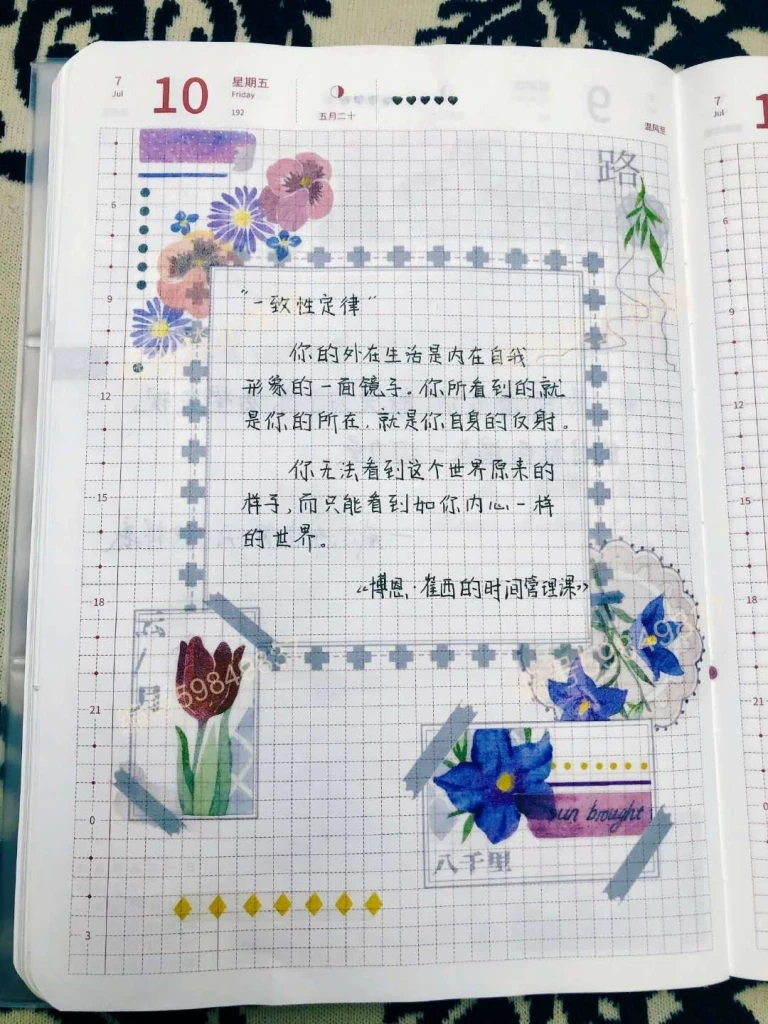 7
Jul
10
星期五
Friday
192
五月二十
温风至
7
Jul
1
路
"一致性定律"
你的外在生活是内在自我
形象的一面镜子.你所看到的就
是你的所在,就是你自身的反射。
你无法看到这个世界原来的
样子,而只能看到如你内心一样
的世界。
《博恩·崔西的时间管理课》
sun brought
八千里
6
9
12
15
18
21
0
3
9
12
15
18
21